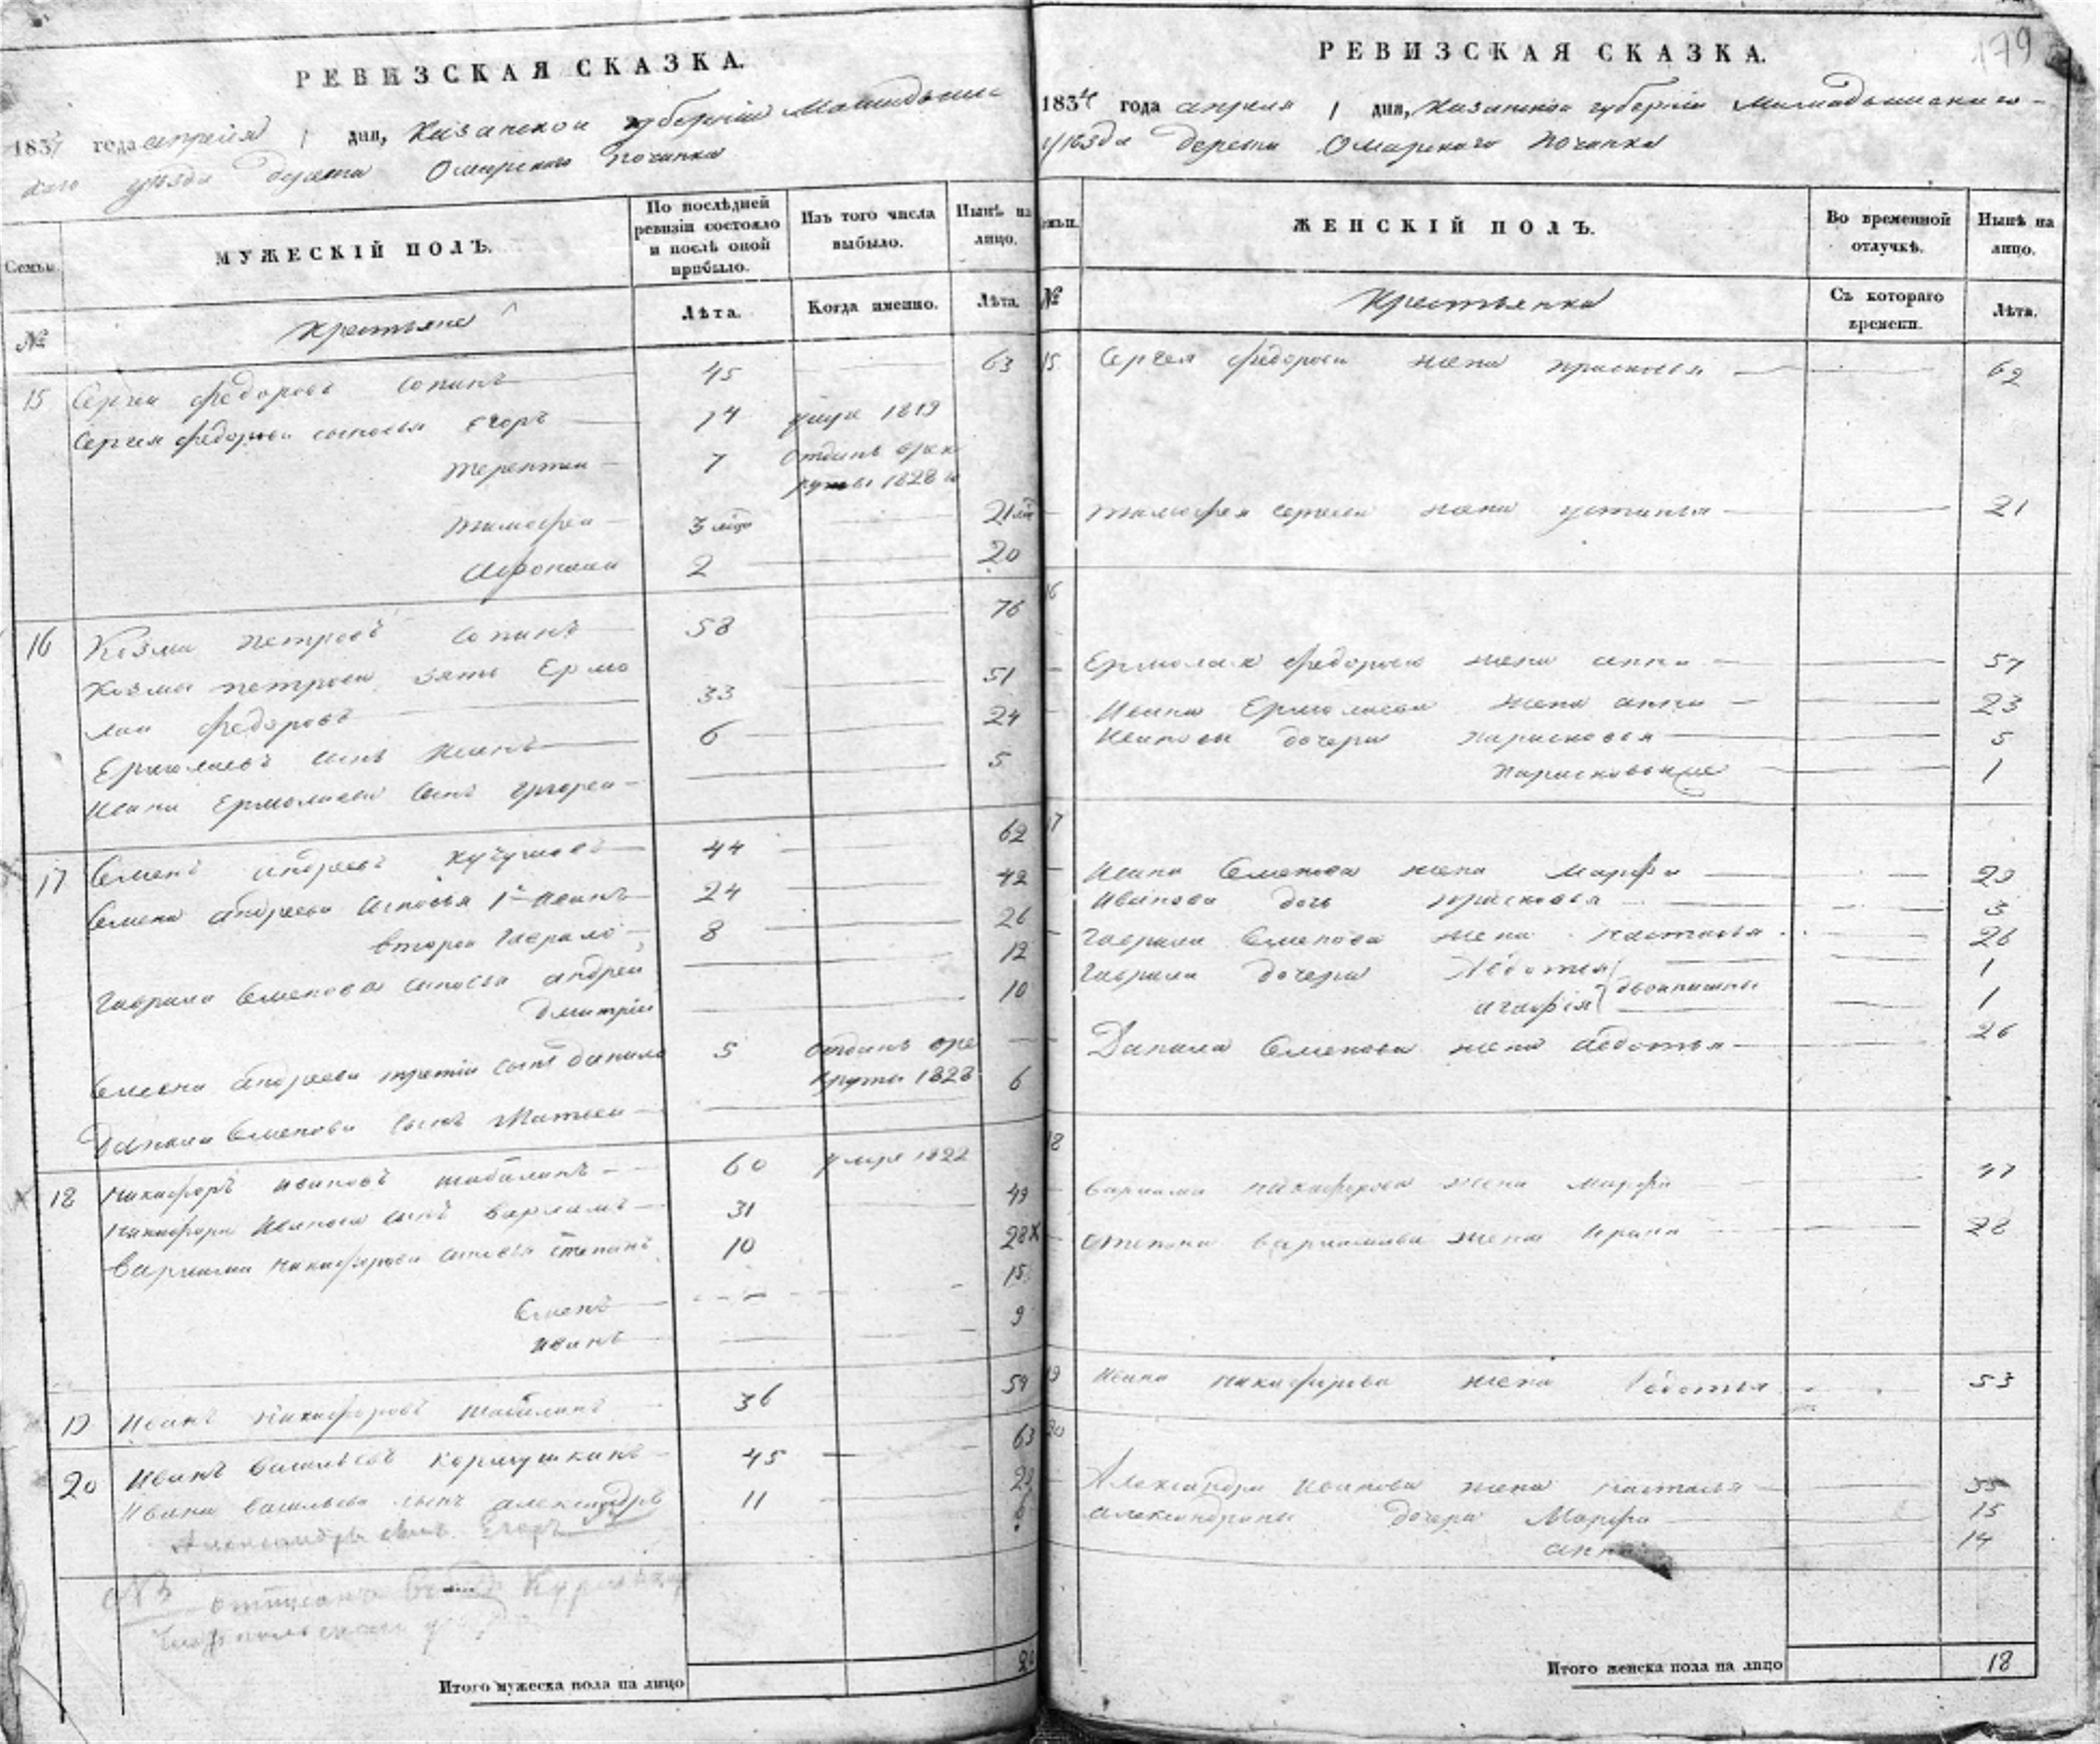 РЕВИЗСКАЯ СКАЗКА.
1834 года апреля 1 дня, Казанской губернии Мамадыш
скаго уезда деревни Омарскаго Починка
Семьи.
МУЖЕСКІЙ ПОЛЪ.
По послѣдней ревизіи состояло и послѣ оной прибыло.
Изъ того числа выбыло.
Нынѣ на лицо.
№
Крестьяне
Лѣта.
Когда именно.
Лѣта.
15 Сергей Федоровъ 45 63
Сергея Федорова сыновья Егоръ 14 умре 1819
Терентей 7 отданъ врек
руты 1828
Тимофей 3 21
Афонасей 2 20
16 Козма Петровъ 58 76
Козмы Петрова зять Ермо
лай Федоровъ 33 51
Ермолаевъ сынъ Иванъ 6 24
Ивана Ермолаева сынъ Григорей 5
17 Семенъ Андреевъ 44 62
Семена Андреева сыновья 1й Иванъ 24 42
второй Гаврило 8 26
Гаврила Семенова сыновья Андрей 12
Дмитрій 10
Семена Андреева третій сынъ Данило 5 отданъ вре
круты 1828
Данила Семенова сынъ Матвей 6
18 Никифоръ Ивановъ Шабалинъ 60 умре 1822
Никифора Иванова сынъ Варламъ 31 49
Варлама Никифорова сыновья Степанъ 10 28
Семенъ 15
Иванъ 9
19 Иванъ Никифоровъ Шабалинъ 36 54
20 Иванъ Васильевъ 45 63
Ивана Васильева сынъ Александръ 11 29
Александра сынъ Егоръ 6
Итого мужеска пола на лицо 20
РЕВИЗСКАЯ СКАЗКА.
179
1834 года апреля 1 дня, Казанской губерніи Мамадышскаго
уѣзда деревни Омарскаго Починка
Семьи.
ЖЕНСКІЙ ПОЛЪ.
Во временной отлучкѣ.
Нынѣ на лицо.
№
Крестьянки
Съ котораго времени.
Лѣта.
15 Сергея Федорова жена Прасковья 62
Тимофея Сергеева жена Устинья 21
16
Ермолая Федорова жена Анна 57
Ивана Ермолаева жена Анна 23
Ивановы дочери Парасковья 5
Парасковья же 1
17
Ивана Семенова жена Марфа 29
Иванова дочь Прасковья 3
Гаврила Семенова жена Настасья 26
Гаврила дочери Авдотья 1
Агафія 1
Данила Семенова жена Авдотья 26
18
Варлама Никифорова жена Марфа 47
Степана Варламова жена Ирина 28
19 Ивана Никифорова жена Авдотья 53
20
Александра Иванова жена Настасья 35
Александрины дочери Марфа 15
Анна 14
Итого женска пола на лицо 18